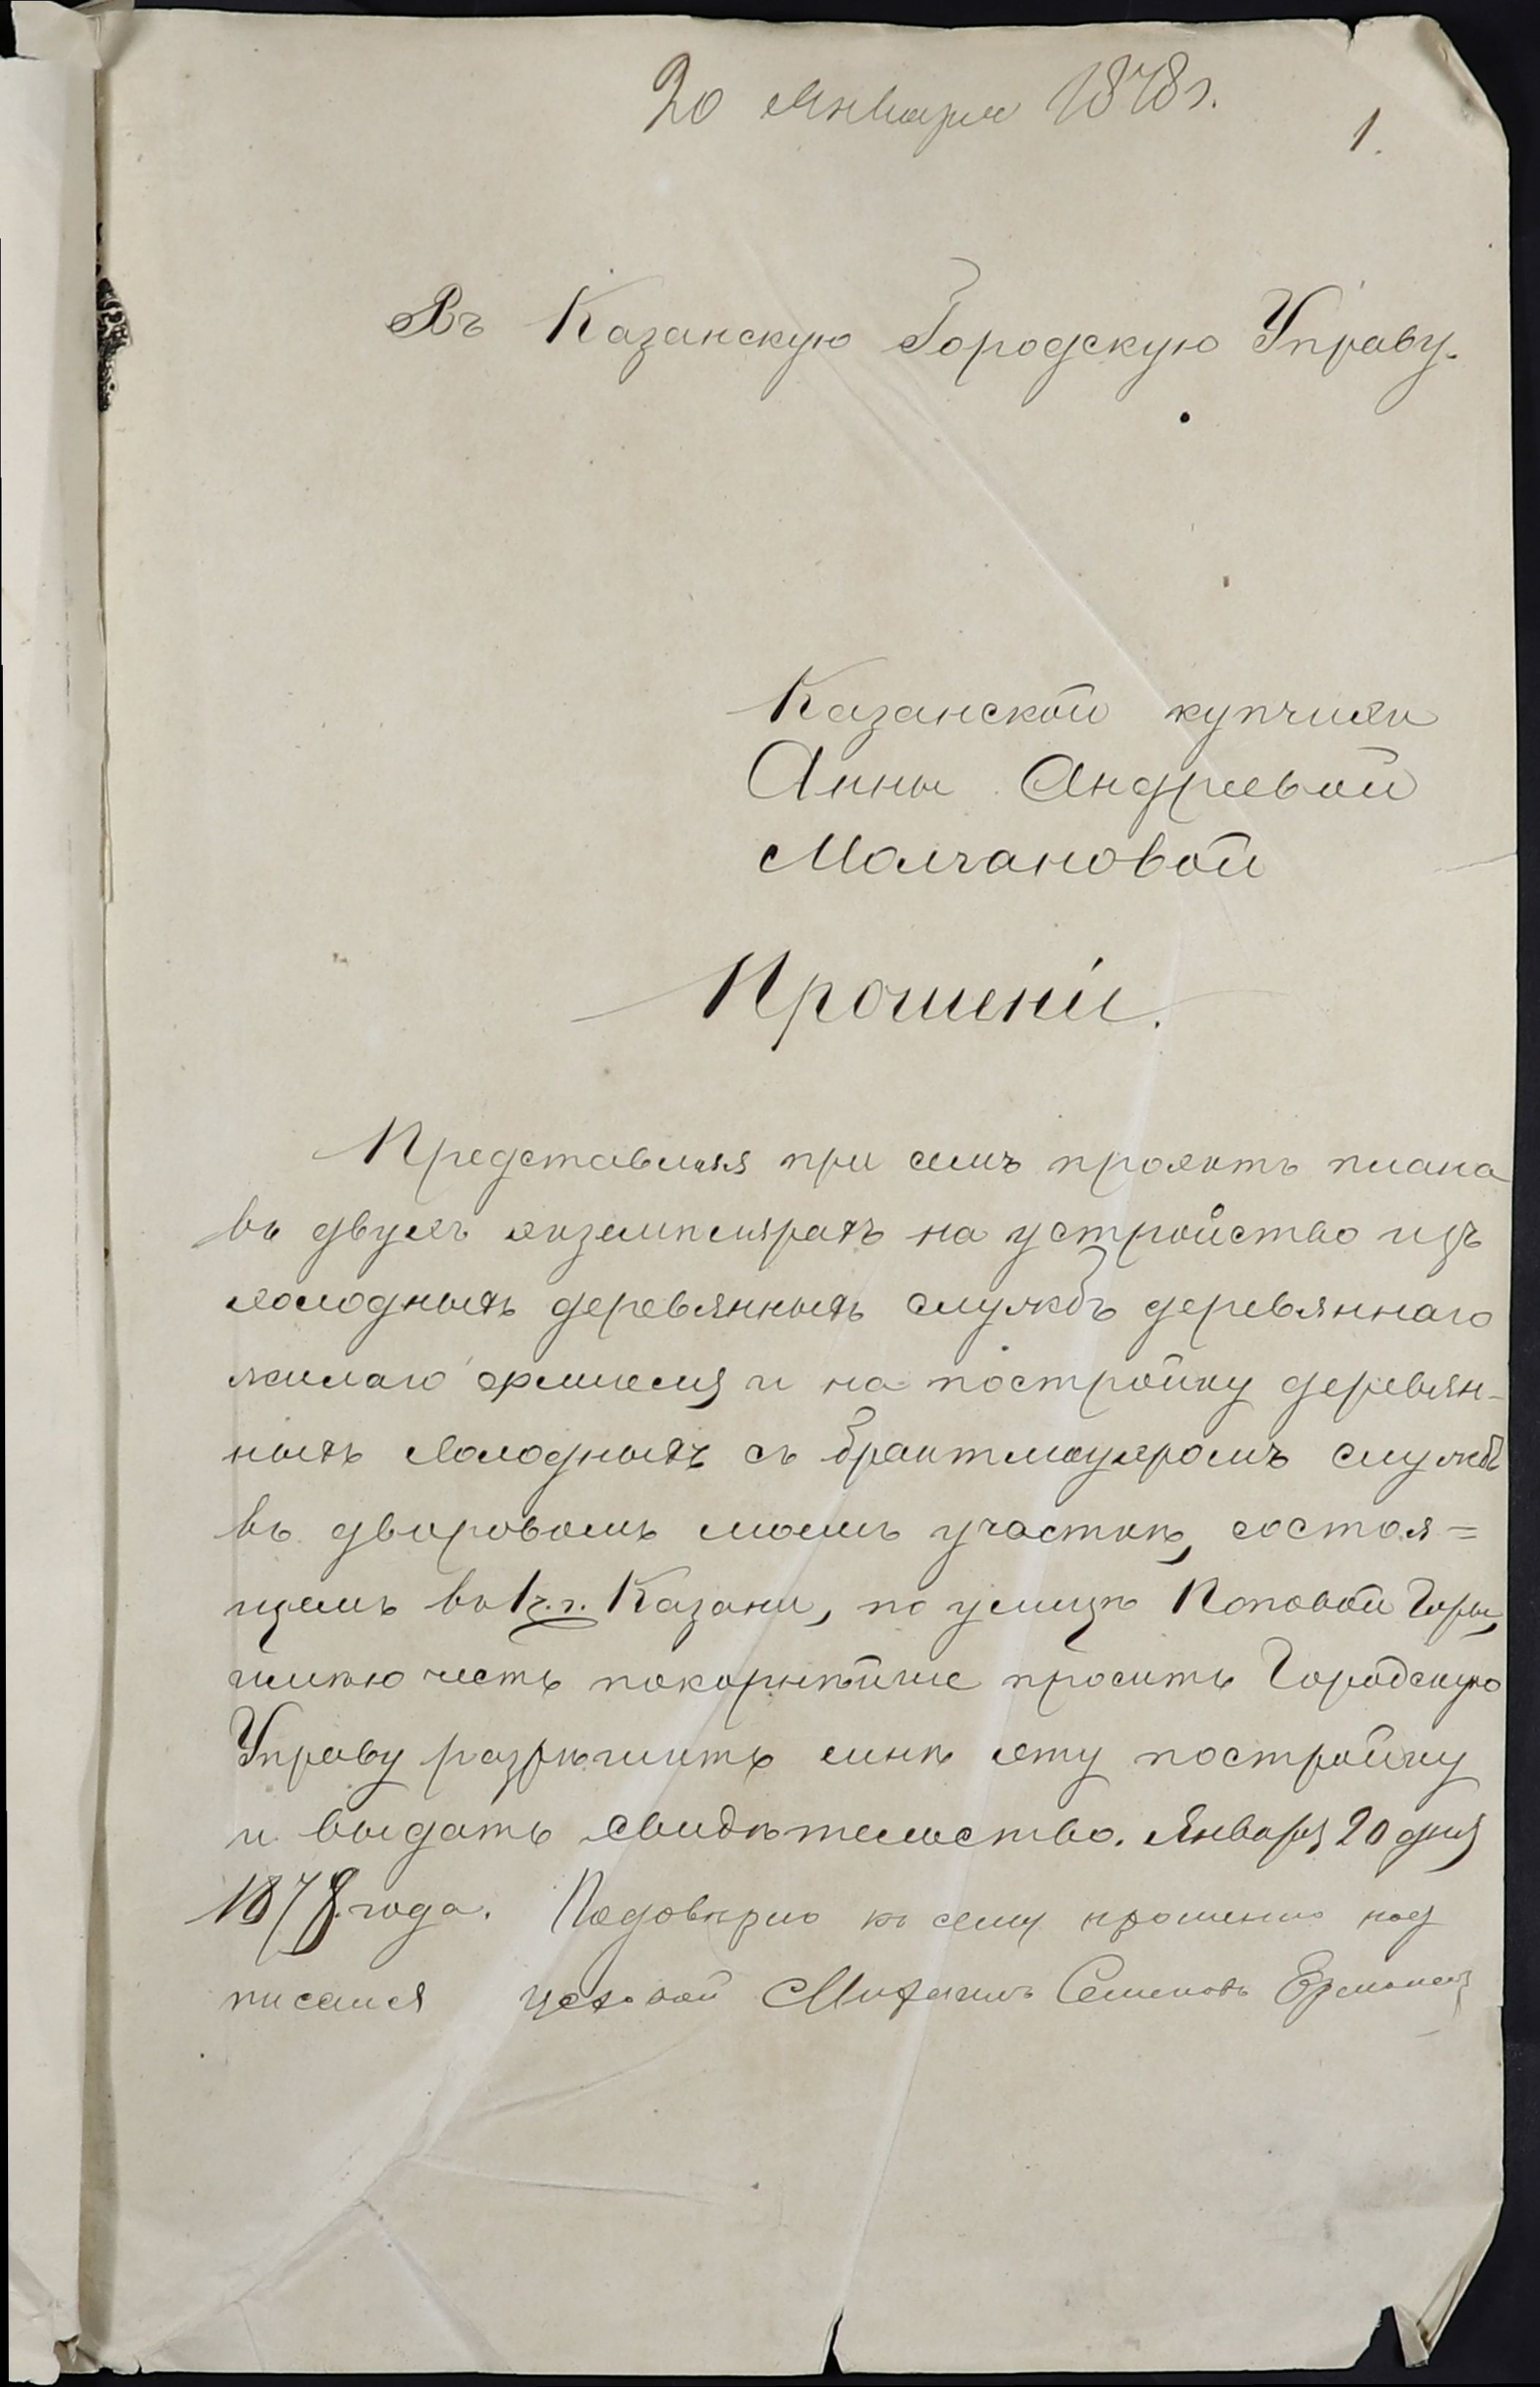 20 Января 1878 г.
1.
Въ Казанскую Городскую Управу.
Казанской купчихи
Анны Андреевой
Молчановой
Прошеніе.
Представляя при семъ проэктъ плана
въ двухъ экземплярахъ на устройство изъ
холодныхъ деревянныхъ службъ деревяннаго
жилаго флигеля и на постройку деревян-
ныхъ холодныхъ съ брантмауэромъ службъ
въ дворовомъ моемъ участкѣ, состоя=
щемъ въ 1 ч. г. Казани, по улицѣ Поповой Горы,
имѣю честь покорнѣйше просить Городскую
Управу разрѣшить мнѣ эту постройку
и выдать свидѣтельство. Января 20 дня
1878 года. Подовѣрию къ сему прошению под
писался цеховой Михаилъ Семеновъ